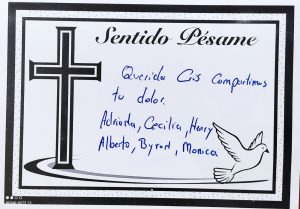 Sentido Pésame
Querida Cris Compartimos
tu dolor.
Adriada, Cecilia, Henry
Alberto, Byron, Monica